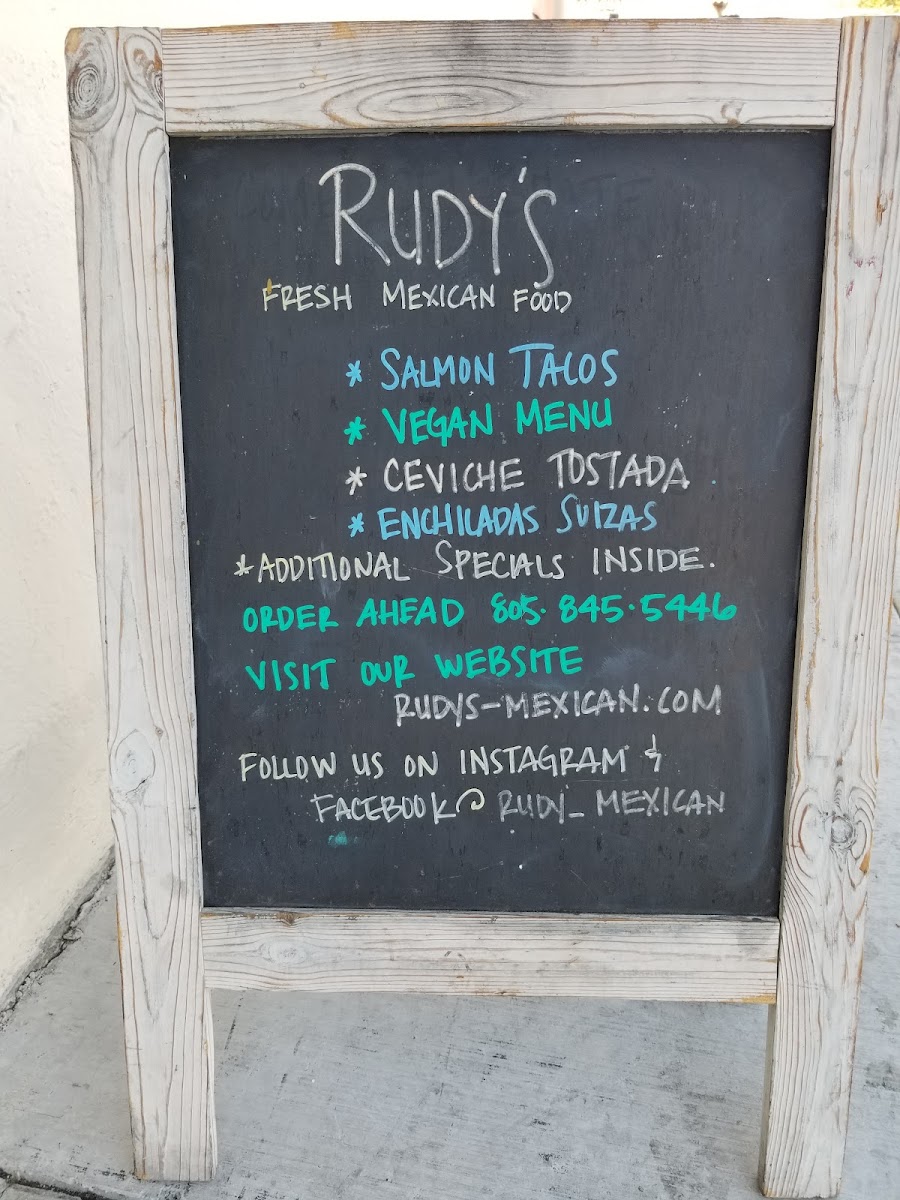 RUDY'S
FRESH MEXICAN FOOD
* SALMON TACOS
* VEGAN MENU
* CEVICHE TOSTADA
* ENCHILADAS SUIZAS
*ADDITIONAL SPECIALS INSIDE.
ORDER AHEAD 805.845.5446
VISIT OUR WEBSITE
RUDYS-MEXICAN.COM
FOLLOW US ON INSTAGRAM &
FACEBOOK @ RUDY_MEXICAN